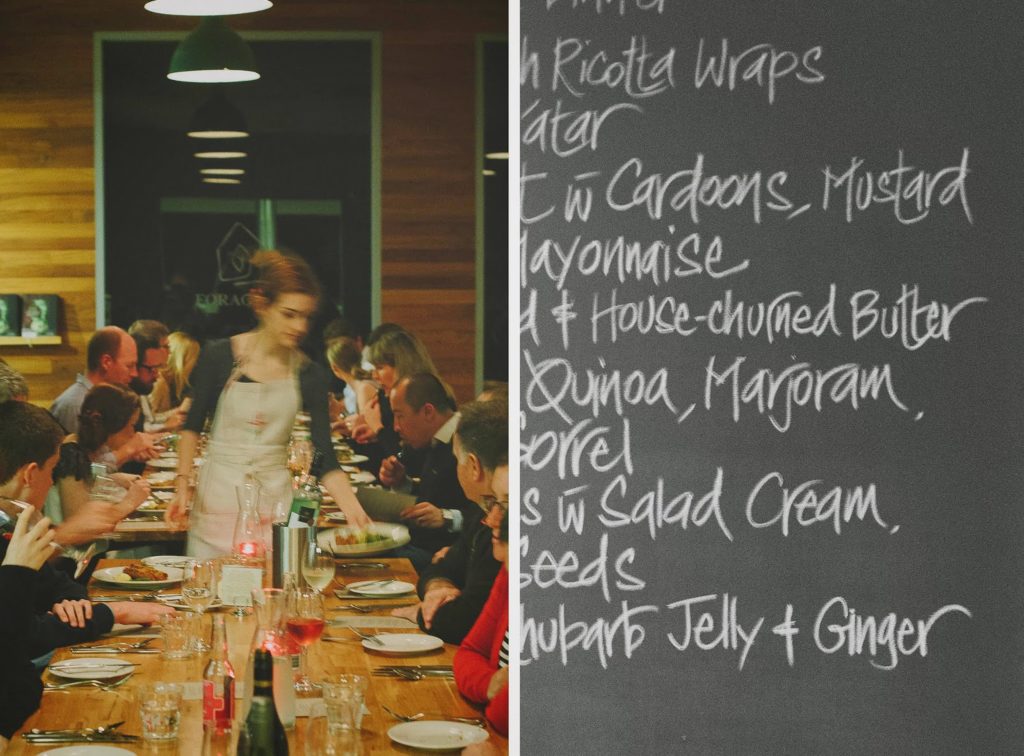 FORAG
Dinner
h Ricotta Wraps
atar
t w̄ Cardoons, Mustard
Mayonnaise
d & House-churned Butter
Quinoa, Marjoram,
Sorrel
s w̄ Salad Cream,
Seeds
hubarb Jelly & Ginger